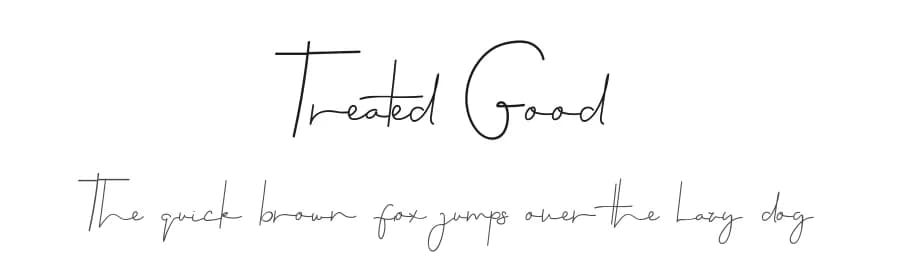 Treated Good
The quick brown fox jumps over the Lazy dog